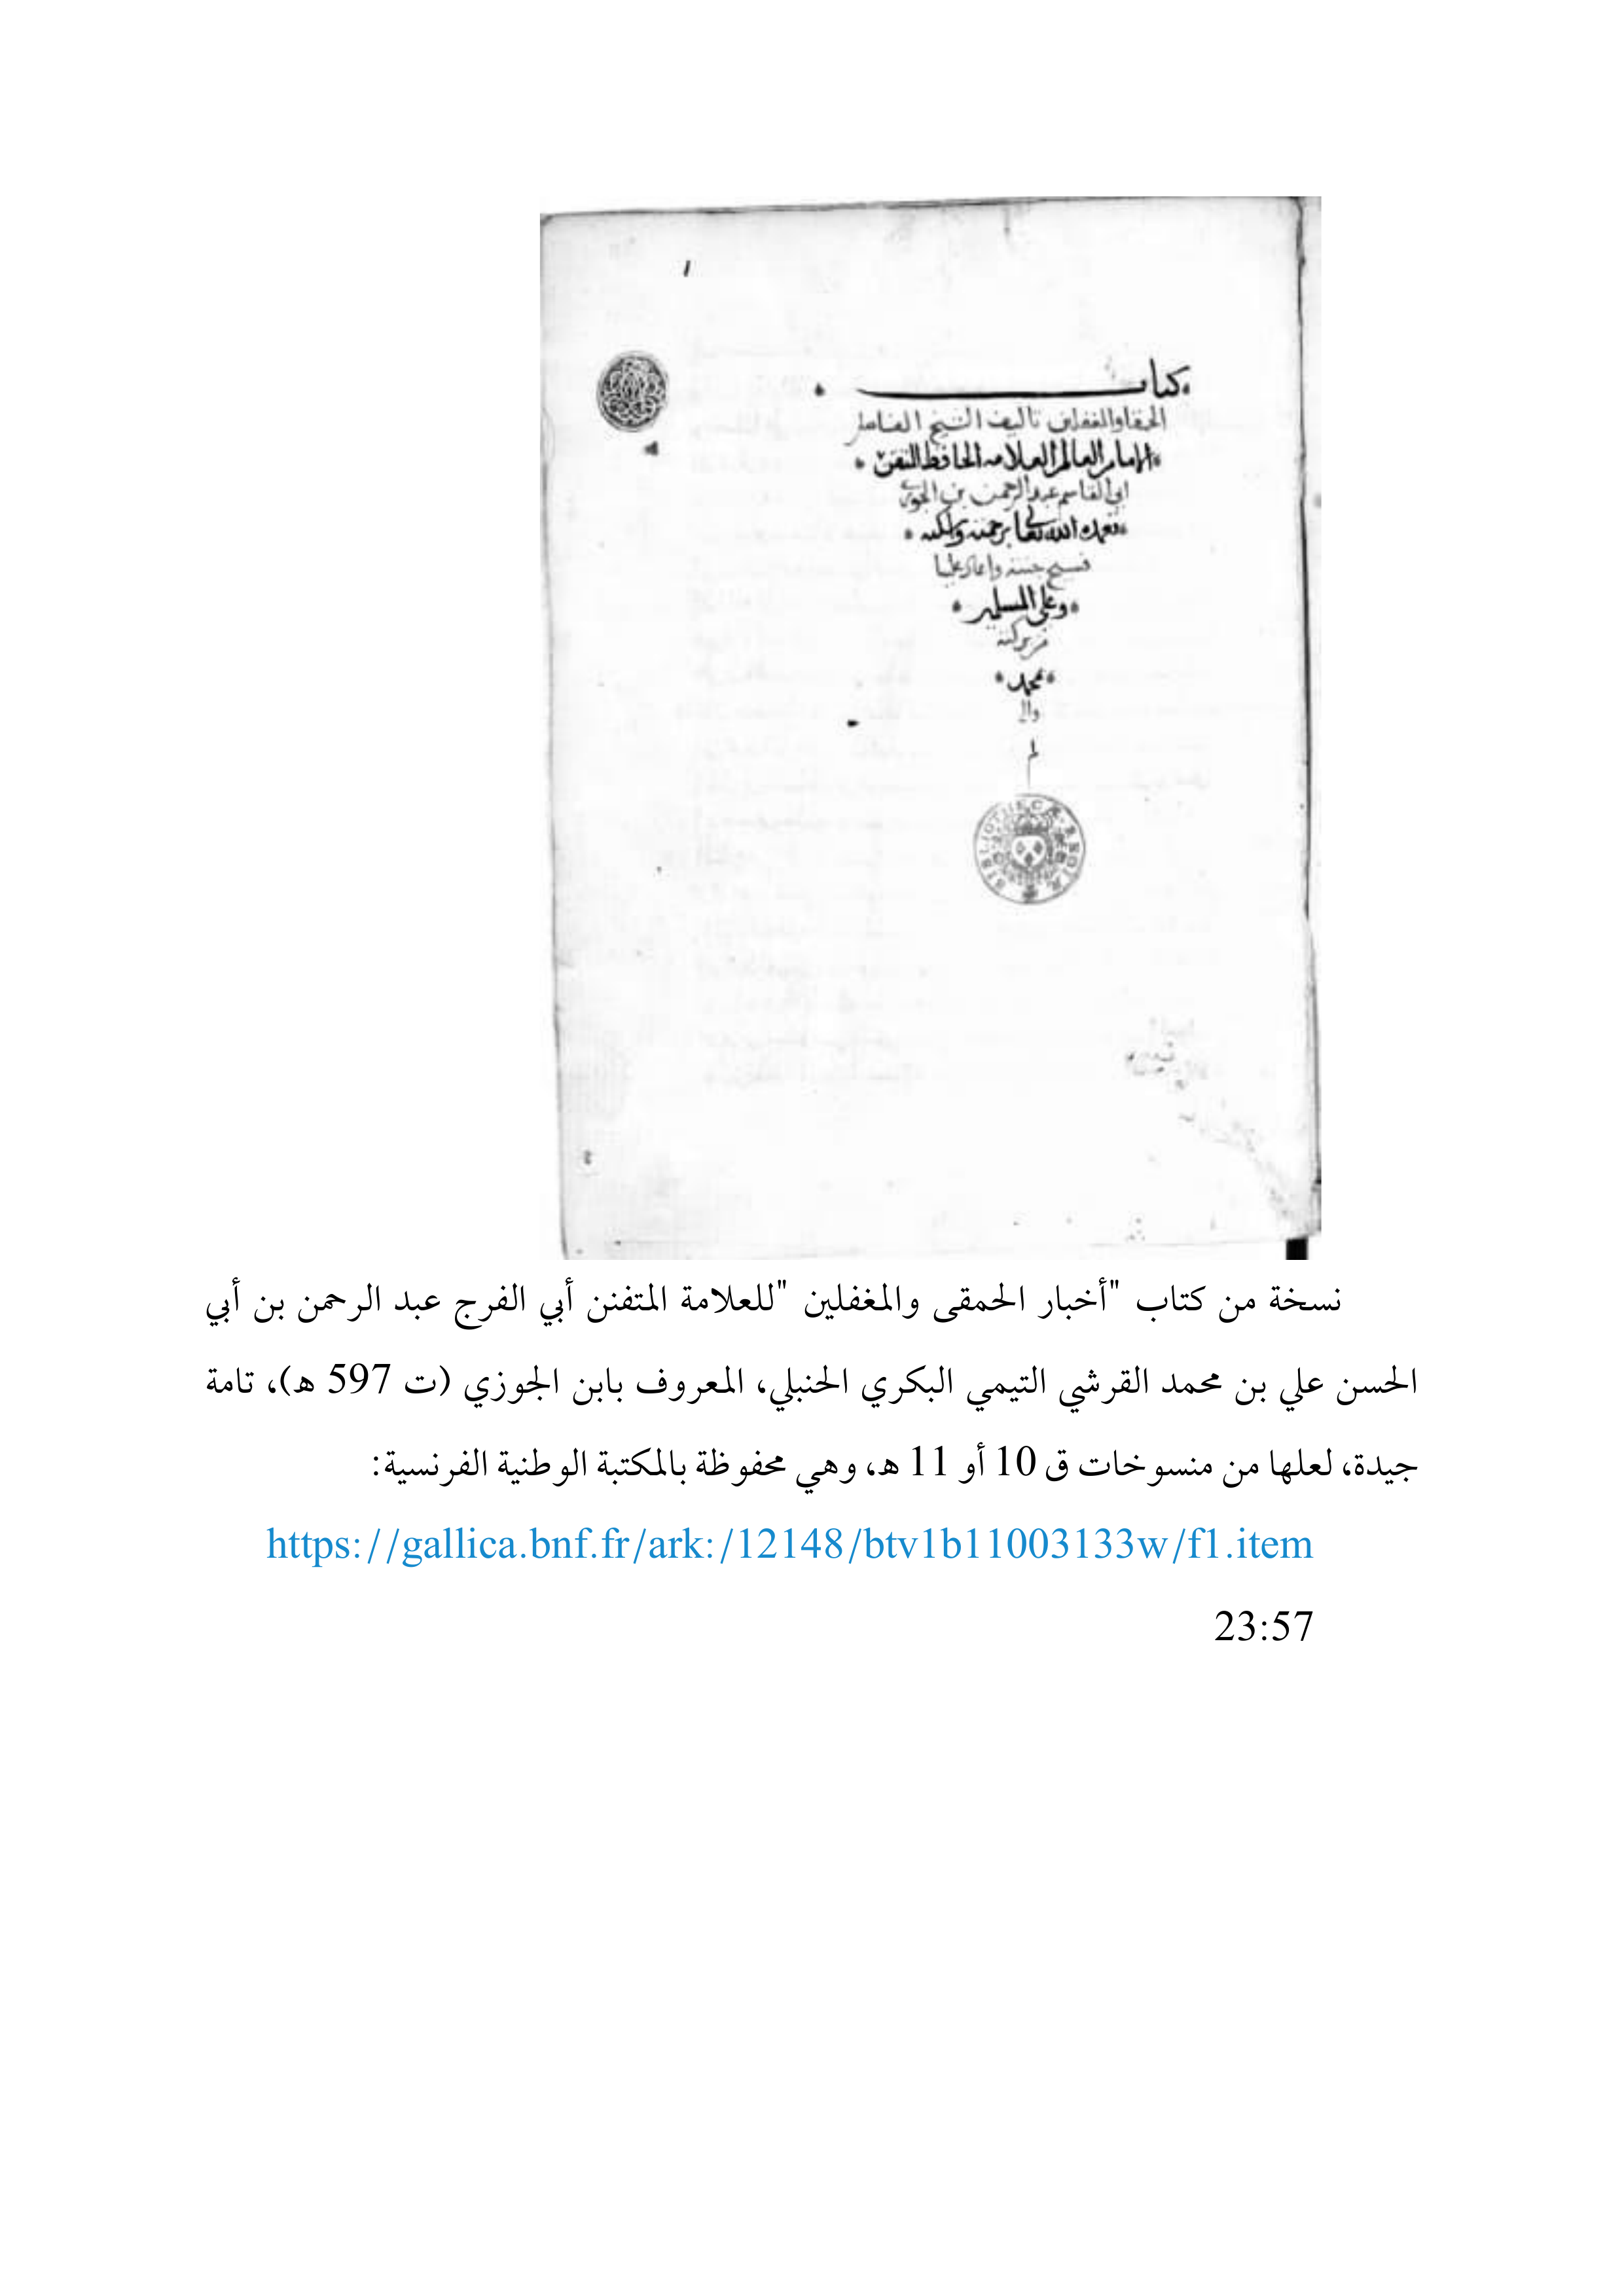 ١
كتاب
الحمقا والمغفلين تاليف الشيخ الفاضل
الامام العالم العلامه الحافظ المتقن
ابى القاسم عبد الرحمن بن الجوزى
تغمده الله تعالى برحمته واسكنه
فسيح جنته واعاد علينا
وعلى المسلمين
من بركته
محمد
وال
BIBLIOTHECAE REGIAE
نسخة من كتاب "أخبار الحمقى والمغفلين "للعلامة المتفنن أبي الفرج عبد الرحمن بن أبي
الحسن علي بن محمد القرشي التيمي البكري الحنبلي، المعروف بابن الجوزي (ت 597 هـ)، تامة
جيدة، لعلها من منسوخات ق 10 أو 11 هـ، وهي محفوظة بالمكتبة الوطنية الفرنسية:
https://gallica.bnf.fr/ark:/12148/btv1b11003133w/f1.item
23:57